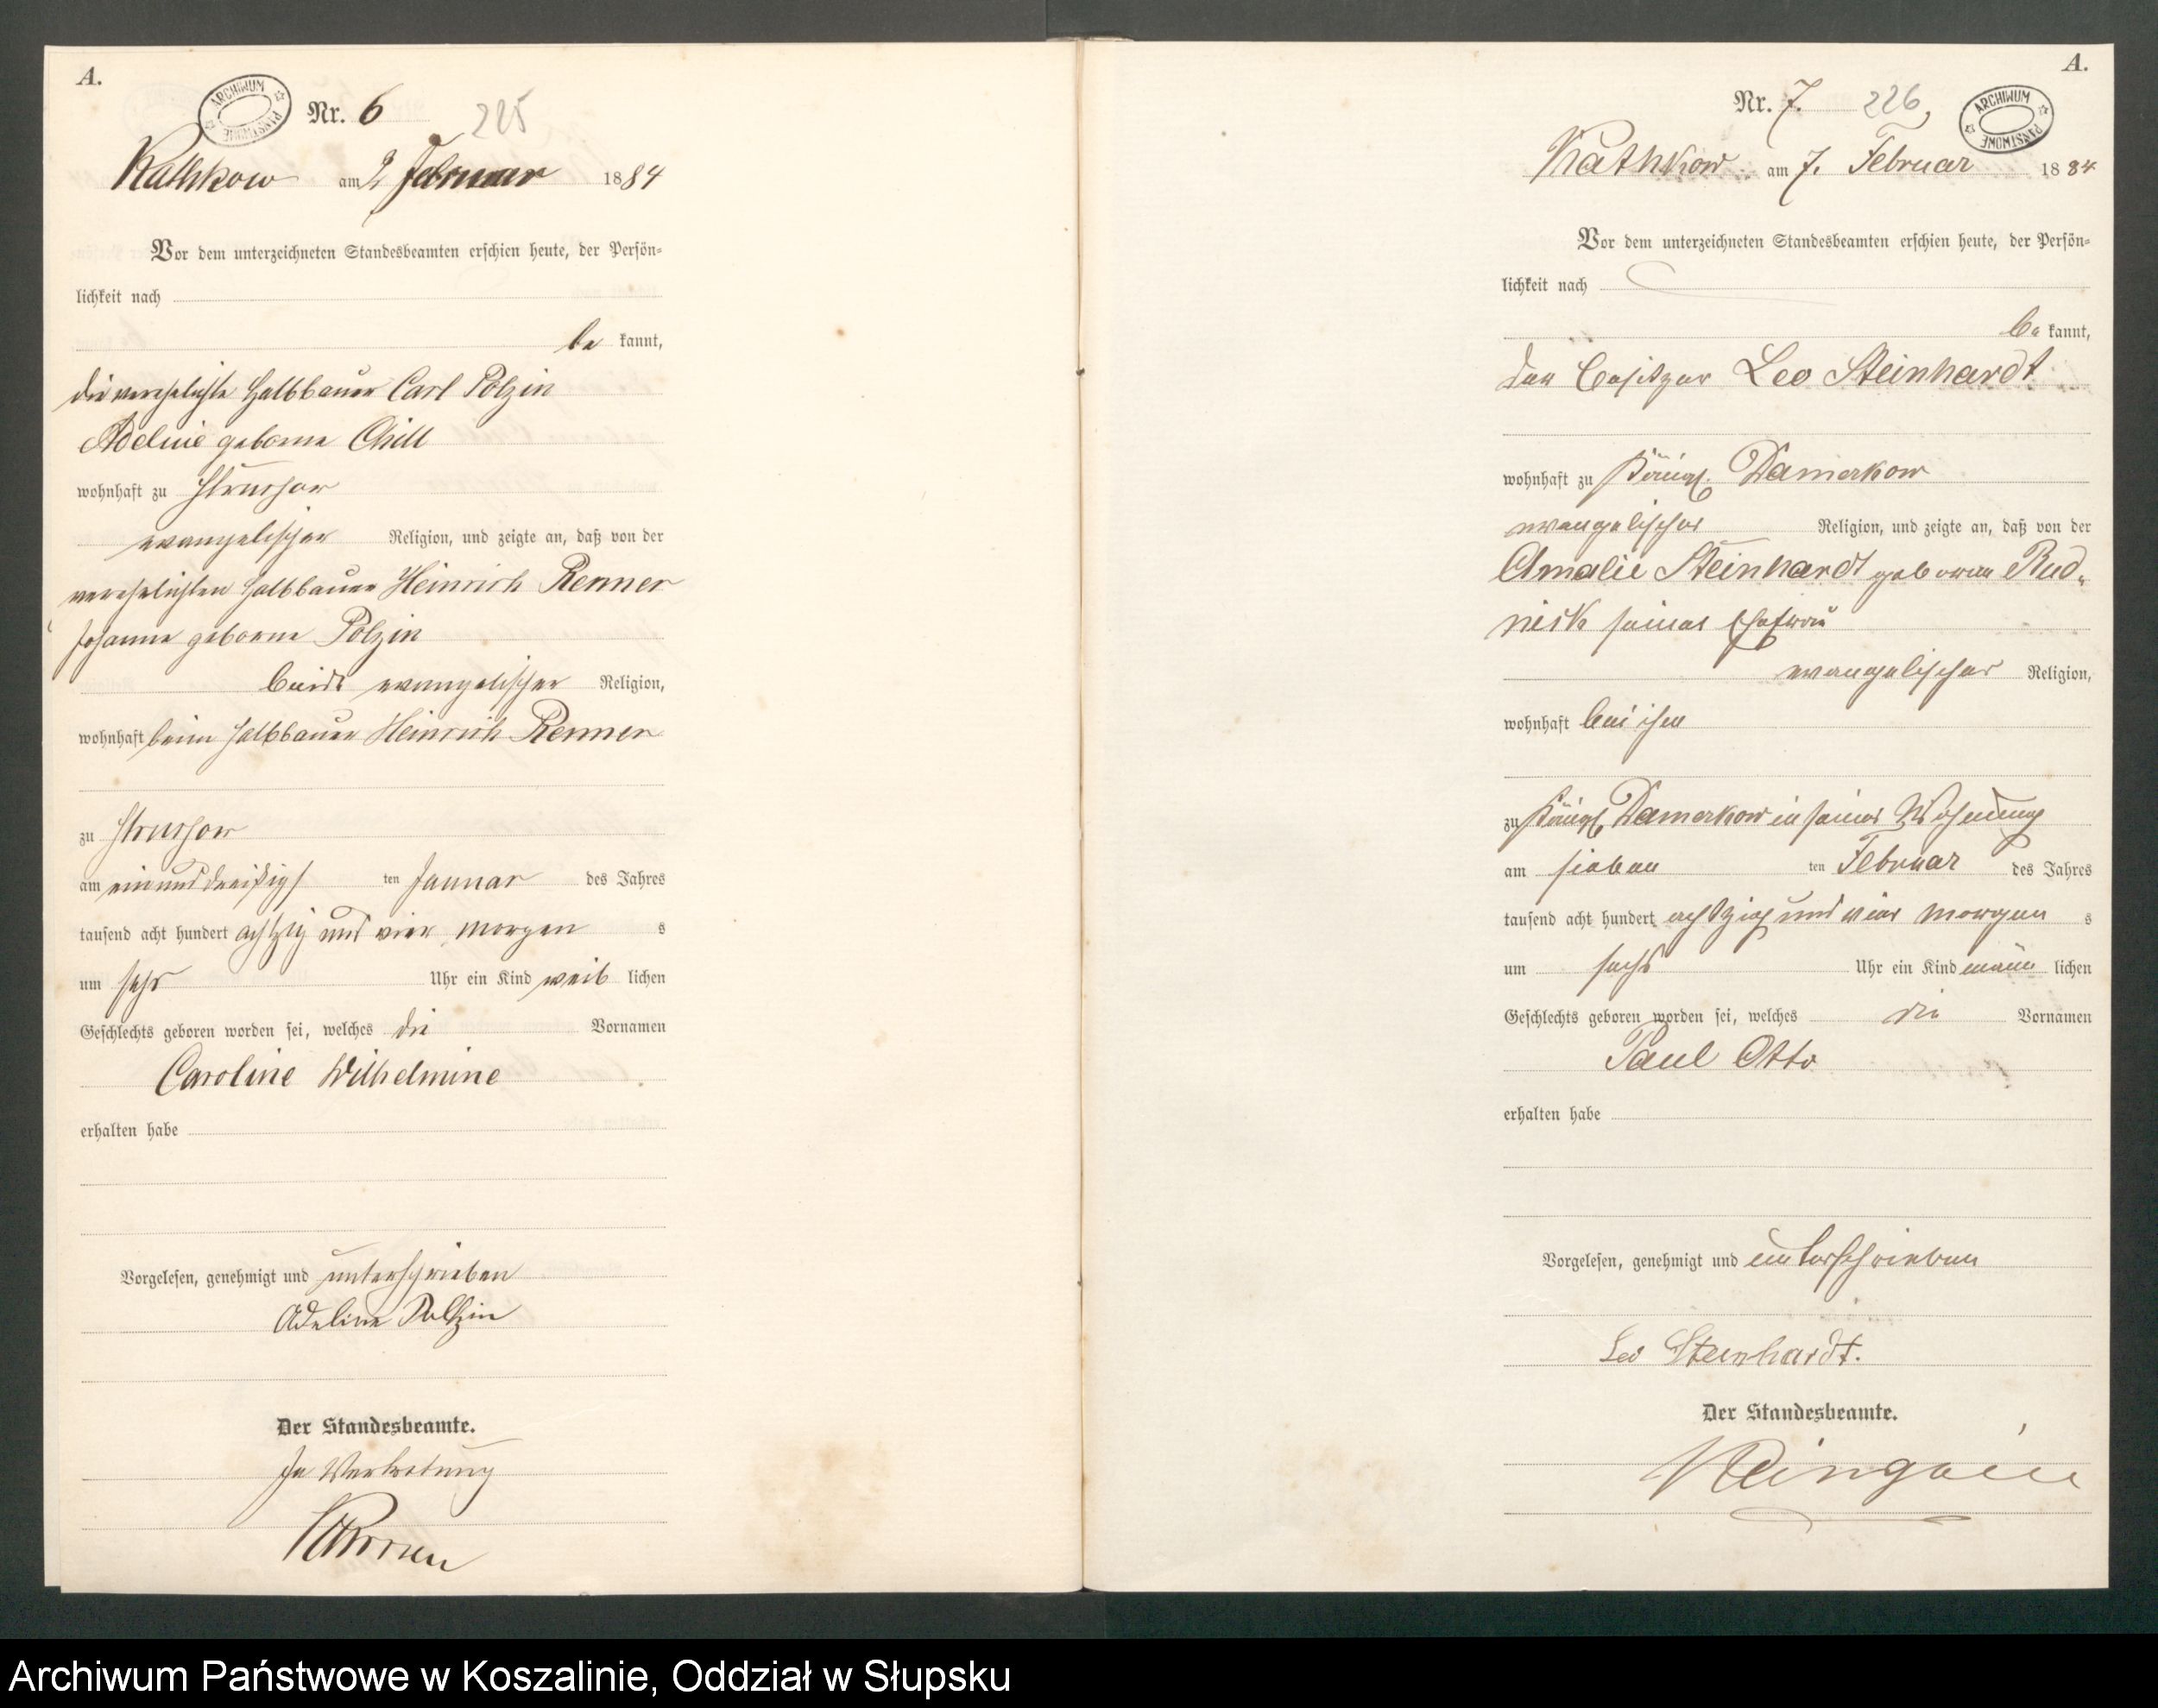 A.
ARCHIWUM PAŃSTWOWE
Nr. 6 225
Rathkow am 2 Februar 1884
Vor dem unterzeichneten Standesbeamten erschien heute, der Persön-
lichkeit nach
be kannt,
die verehelichte Halbbauer Carl Polzin
Adeline geborne Chill
wohnhaft zu Strussow
evangelischer Religion, und zeigte an, daß von der
verehelichten Halbbauer Heinrich Renner
Johanne geborne Polzin
beide evangelischer Religion,
wohnhaft beim Halbbauer Heinrich Renner
zu Strussow
am einunddreißigs ten Januar des Jahres
tausend acht hundert achtzig und vier morgen s
um sechs Uhr ein Kind weib lichen
Geschlechts geboren worden sei, welches die Vornamen
Caroline Wilhelmine
erhalten habe
Vorgelesen, genehmigt und unterschrieben
Adeline Polzin
Der Standesbeamte.
In Vertretung
A.
Nr. 7. 226
ARCHIWUM PAŃSTWOWE
Rathkow am 7. Februar 1884
Vor dem unterzeichneten Standesbeamten erschien heute, der Persön-
lichkeit nach
be kannt,
der Besitzer Leo Steinhardt
wohnhaft zu Königl. Damerkow
evangelischer Religion, und zeigte an, daß von der
Amalie Steinhardt geborene Rud-
nick seiner Ehefrau
evangelischer Religion,
wohnhaft bei ihm
zu Königl. Damerkow in seiner Wohnung
am sieben ten Februar des Jahres
tausend acht hundert achtzig und vier morgen s
um sechs Uhr ein Kind männ lichen
Geschlechts geboren worden sei, welches die Vornamen
Paul Otto
erhalten habe
Vorgelesen, genehmigt und unterschrieben
Leo Steinhardt.
Der Standesbeamte.
Archiwum Państwowe w Koszalinie, Oddział w Słupsku